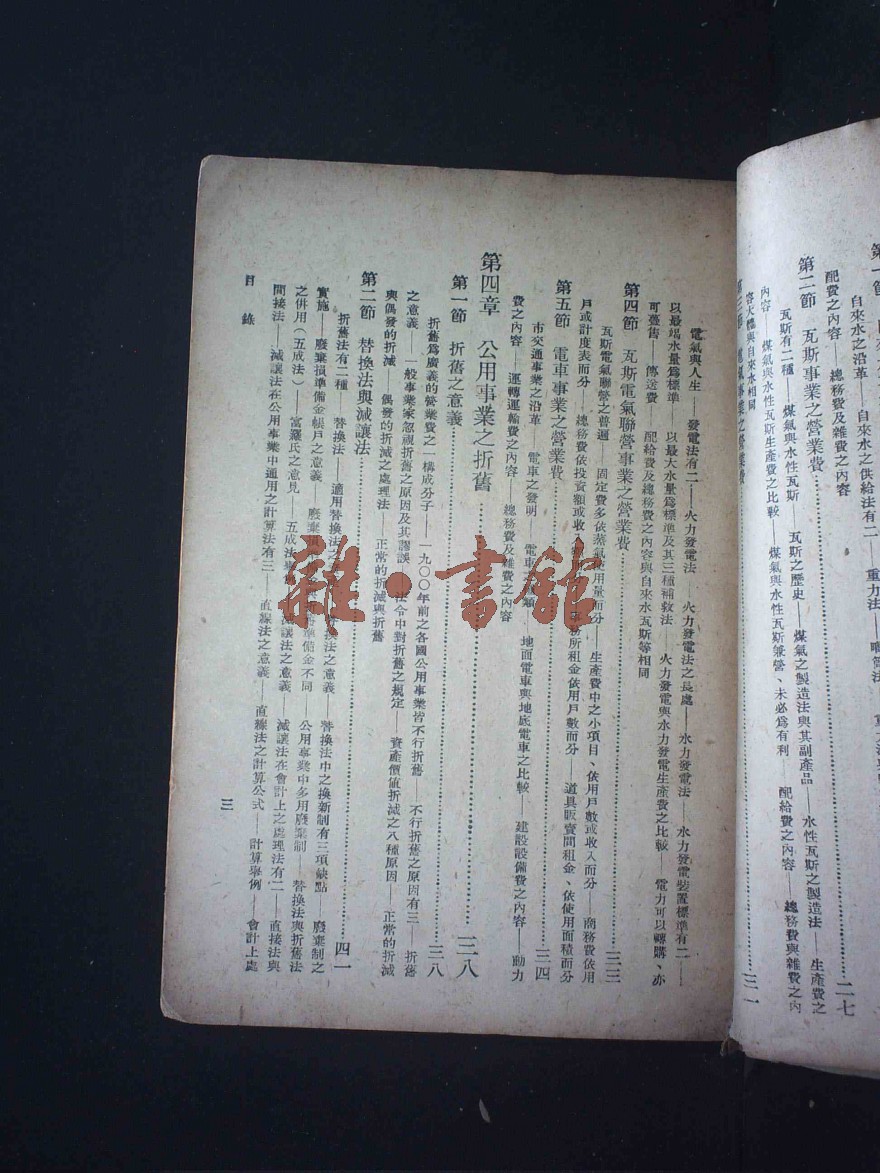 自來水之沿革——自來水之供給法有二——重力法——
配費之內容——總務費及雜費之內容
第二節 瓦斯事業之營業費……二七
瓦斯有二種——煤氣與水性瓦斯——瓦斯之歷史——煤氣之製造法與其副產品——水性瓦斯之製造法——生產費之
內容——煤氣與水性瓦斯生產費之比較——煤氣與水性瓦斯兼營、未必爲有利——配給費之內容——總務費與雜費之內
容大體與自來水相同
第三節 電氣事業之營業費……三一
電氣與人生——發電法有二——火力發電法——火力發電法之長處——水力發電法——水力發電裝置標準有二——
以最竭水量爲標準——以最大水量爲標準及其三種補救法——火力發電與水力發電生產費之比較——電力可以轉購、亦
可躉售——傳送費——配給費及總務費之內容與自來水瓦斯等相同
第四節 瓦斯電氣聯營事業之營業費……三三
瓦斯電氣聯營之普遍——固定費多依蒸氣使用量而分——生產費中之小項目、依用戶數或收入而分——商務費依用
戶或計度表而分——總務費依投資額或收入 事務所租金依用戶數而分——道具販賣間租金、依使用面積而分
第五節 電車事業之營業費……三四
市交通事業之沿革——電車之發明——電車之 類——地面電車與地底電車之比較——建設設備費之內容——動力
費之內容——運轉運輸費之內容——總務費及雜費之內容
第四章 公用事業之折舊……三八
第一節 折舊之意義……三八
折舊爲廣義的營業費之一構成分子——一九〇〇年前之各國公用事業皆不行折舊——不行折舊之原因有三——折舊
之意義——一般事業家忽視折舊之原因及其謬誤——法令中對折舊之規定——資產價值折減之八種原因——正常的折減
與偶發的折減——偶發的折減之處理法——正常的折減與折舊
第二節 替換法與減讓法……四一
折舊法有二種——替換法——適用替換法之 替換法之意義——替換法中之換新制有三項缺點——廢棄制之
實施——廢棄損準備金帳戶之意義——廢棄損 準備金不同——公用事業中多用廢棄制——替換法與折舊法
之併用（五成法）——富羅氏之意見——五成法 減讓法之意義——減讓法在會計上之處理法有二——直接法與
間接法——減讓法在公用事業中通用之計算法有三——直線法之意義——直線法之計算公式——計算舉例——會計上處
目錄
三
雜·書館